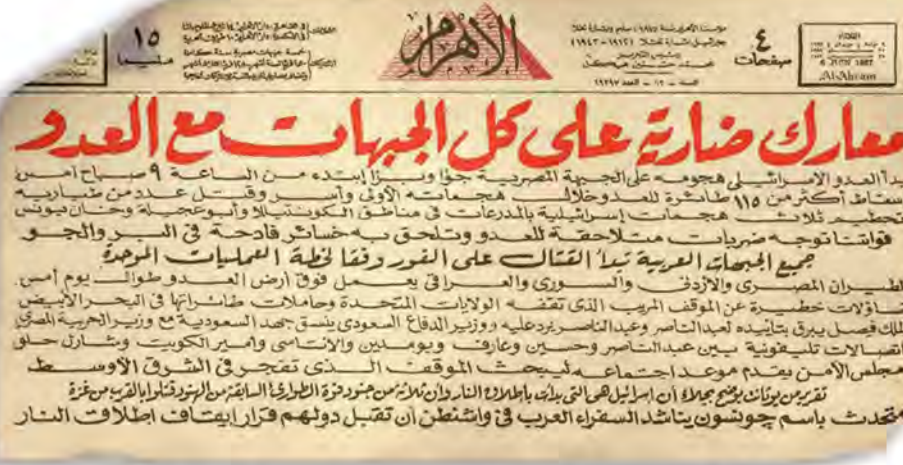 ١٥
مليما
الأهرام
٤
صفحات
6 JUNE 1967
Al-Ahram
معارك ضارية على كل الجبهات مع العدو
بدأ العدو الاسرائيلى هجومه على الجبهة المصرية جوا وبرا إبتداء من الساعة ٩ صباح امس
سقاط أكثر من ١١٥ طائرة للعدو خلال هجماته الأولى وأسر وقتل عدد من طياريه
تحطيم ثلاث هجمات إسرائيلية بالمدرعات فى مناطق الكونتيللا وأبوعجيلة وخان يونس
قواتنا توجه ضربات متلاحقة للعدو وتلحق به خسائر فادحة فى البر والجو
جميع الجبهات العربية تبدأ القتال على الفور وفقا لخطة العمليات الموحدة
الطيران المصرى والأردنى والسورى والعراقى يعمل فوق أرض العدو طوال يوم أمس
تساؤلات خطيرة عن الموقف المريب الذى تقفه الولايات المتحدة وحاملات طائراتها فى البحر الأبيض
الملك فيصل يبرق بتأييده لعبد الناصر وعبد الناصر يرد عليه ووزير الدفاع السعودى ينسق جهد السعودية مع وزير الحربية المصرى
اتصالات تليفونية بين عبد الناصر وحسين وعارف وبومدين والاتاسى وأمير الكويت وشارل حلو
مجلس الأمن يقدم موعد اجتماعه ليبحث الموقف الذى تفجر فى الشرق الأوسط
تقرير من يوثانت يوضح بجلاء أن إسرائيل هى التى بدأت باطلاق النار وأن ثلاثة من جنود قوة الطوارئ السابقة من الهنود قتلوا بالقرب من غزة
متحدث باسم جونسون يناشد السفراء العرب فى واشنطن أن تقبل دولهم قرار إيقاف اطلاق النار